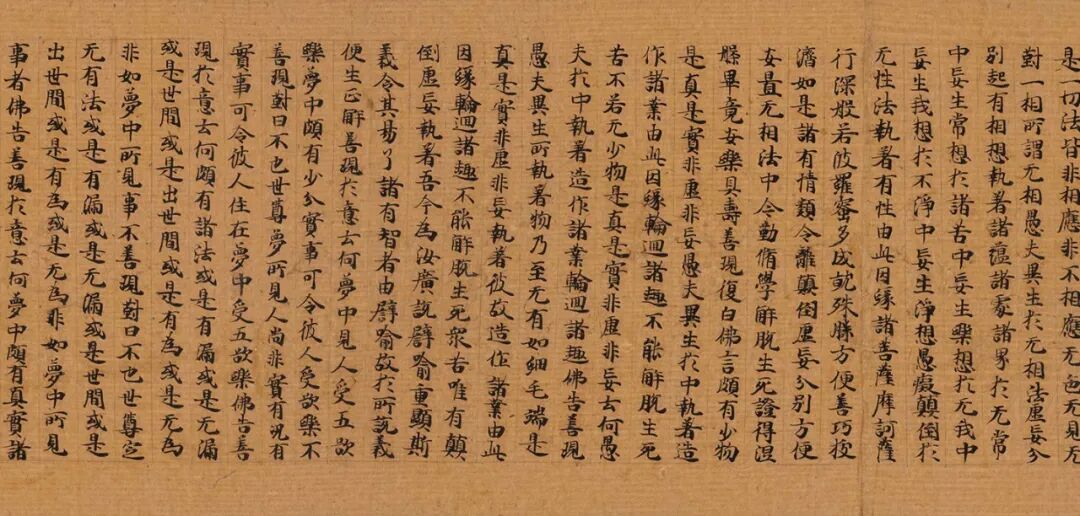 是一切法皆非相應非不相應无色无見无
對一相所謂无相愚夫異生於无相法虛妄分
別起有相想執著諸蘊諸處諸界於无常
中妄生常想於諸苦中妄生樂想於无我中
妄生我想於不淨中妄生淨想愚癡顛倒於
无性法執著有性由此因緣諸菩薩摩訶薩
行深般若波羅蜜多成就殊勝方便善巧拔
濟如是諸有情類令離顛倒虛妄分別方便
安置无相法中令勤脩學解脫生死證得涅
槃畢竟安樂具壽善現復白佛言頗有少物
是真是實非虛非妄愚夫異生於中執著造
作諸業由此因緣輪迴諸趣不能解脫生死
苦不若无少物是真是實非虛非妄云何愚
夫於中執著造作諸業輪迴諸趣佛告善現
愚夫異生所執著物乃至无有如細毛端是
真是實非虛非妄執著彼故造作諸業由此
因緣輪迴諸趣不能解脫生死衆苦唯有顛
倒虛妄執著吾今為汝廣說譬喻重顯斯
義令其易了諸有智者由譬喻故於所說義
便生正解善現於意云何夢中見人受五欲
樂夢中頗有少分實事可令彼人受欲樂不
善現對曰不也世尊夢所見人尚非實有況有
實事可令彼人住在夢中受五欲樂佛告善
現於意云何頗有諸法或是有漏或是无漏
或是世間或是出世間或是有為或是无為
非如夢中所見事不善現對曰不也世尊定
无有法或是有漏或是无漏或是世間或是
出世間或是有為或是无為非如夢中所見
事者佛告善現於意云何夢中頗有真實諸